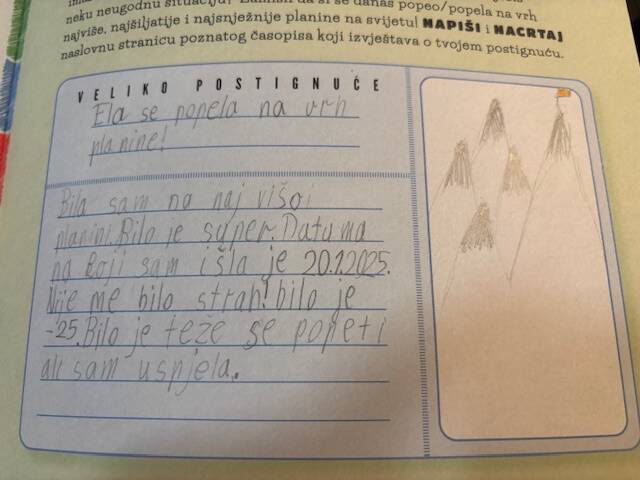 neku neugodnu situaciju? Zamisli da si se danas popeo/popela na vrh
najviše, najšiljatije i najsnježnije planine na svijetu! NAPIŠI i NACRTAJ
naslovnu stranicu poznatog časopisa koji izvještava o tvojem postignuću.
VELIKO POSTIGNUĆE
Ela se popela na vrh
planine!
Bila sam na naj višoj
planini. Bilo je super. Datuma
na koji sam išla je 20.1.2025.
Nije me bilo strah! bilo je
-25. Bilo je teže se popeti
ali sam uspjela.